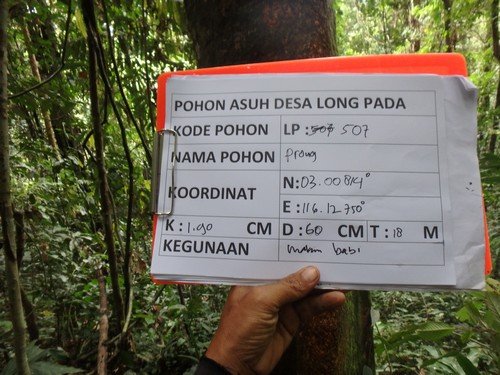 POHON ASUH DESA LONG PADA
KODE POHON LP : 507 507
NAMA POHON Prang
KOORDINAT N : 03.00814°
E : 116.12.750°
K : 1.90 CM D : 60 CM T : 18 M
KEGUNAAN makan babi